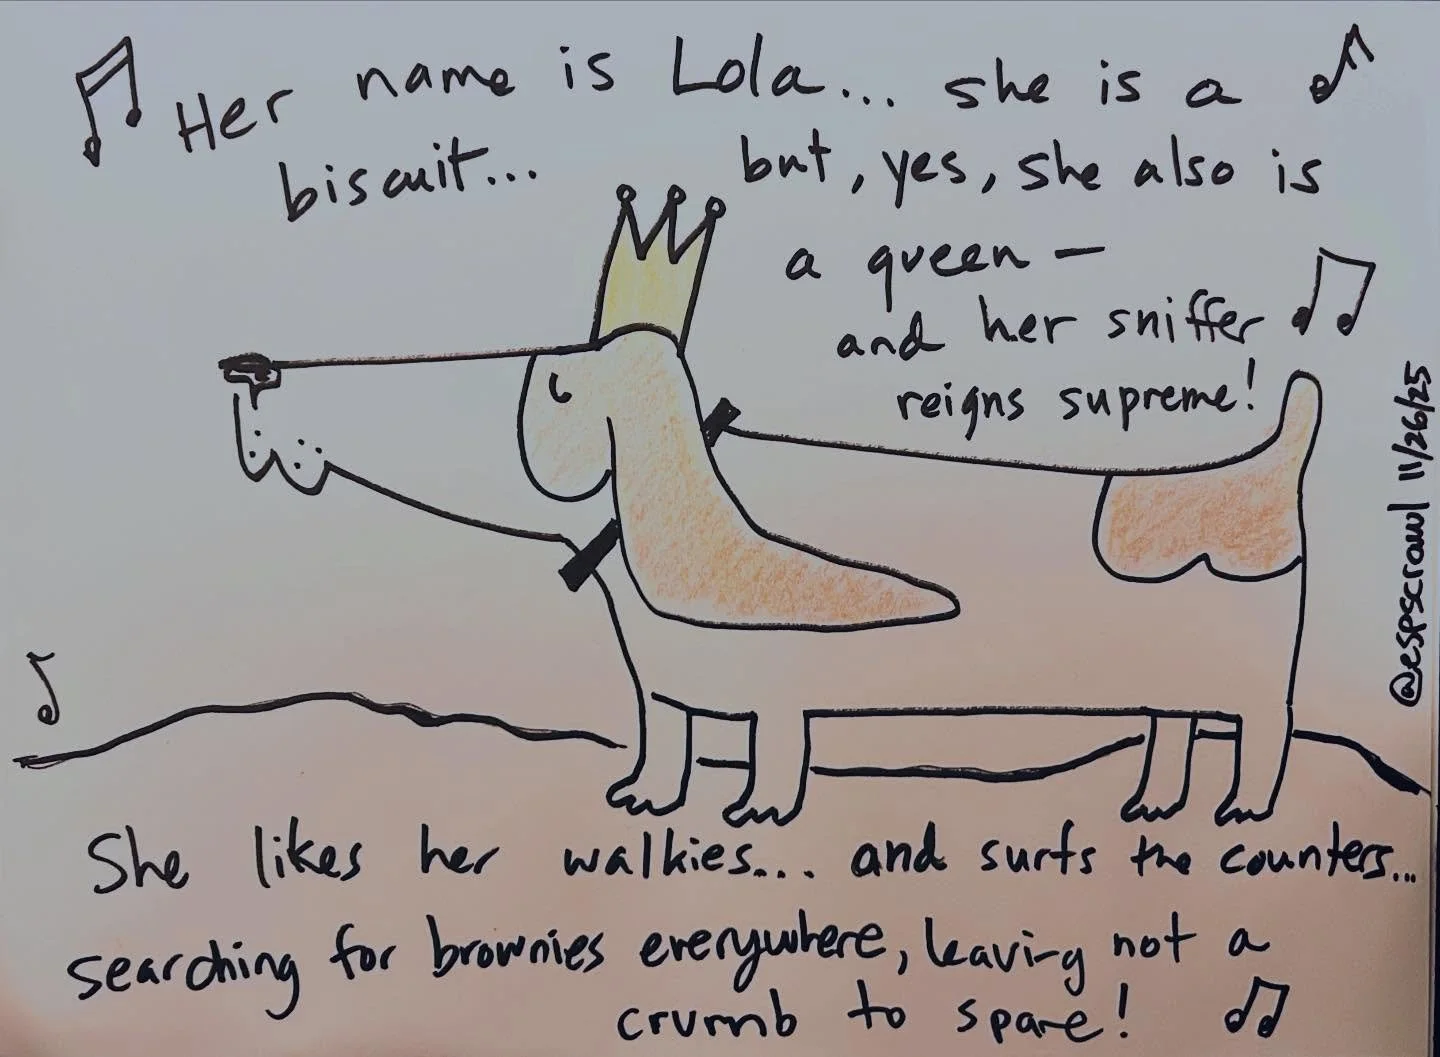 Her name is Lola... she is a
biscuit... but, yes, she also is
a queen —
and her sniffer
reigns supreme!
@espscrawl 11/26/25
She likes her walkies.... and surfs the counters...
searching for brownies everywhere, leaving not a
crumb to spare!